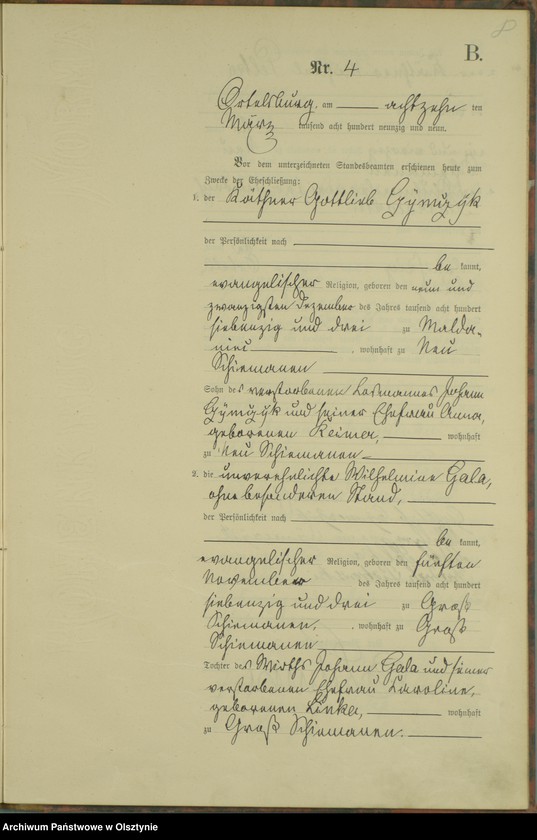 8
B.
Nr. 4
Ortelsburg, am achtzehn ten
März tausend acht hundert neunzig und neun.
Vor dem unterzeichneten Standesbeamten erschienen heute zum
Zwecke der Eheschließung:
1. der Käthner Gottlieb
der Persönlichkeit nach
be kannt,
evangelischer Religion, geboren den neun und
zwanzigsten Dezember des Jahres tausend acht hundert
siebenzig und drei zu Malda-
nietz, wohnhaft zu Neu
Schiemanen
Sohn des verstorbenen Losmannes Johann
und seiner Ehefrau Anna,
geborenen Reimer, wohnhaft
zu Neu Schiemanen
2. die unverehelichte Wilhelmine Gala,
ohne besonderen Stand,
der Persönlichkeit nach
be kannt,
evangelischer Religion, geboren den fünften
November des Jahres tausend acht hundert
siebenzig und drei zu Groß
Schiemanen, wohnhaft zu Groß
Schiemanen
Tochter des Wirths Johann Gala und seiner
verstorbenen Ehefrau Caroline,
geborenen Linka, wohnhaft
zu Groß Schiemanen.
Archiwum Państwowe w Olsztynie